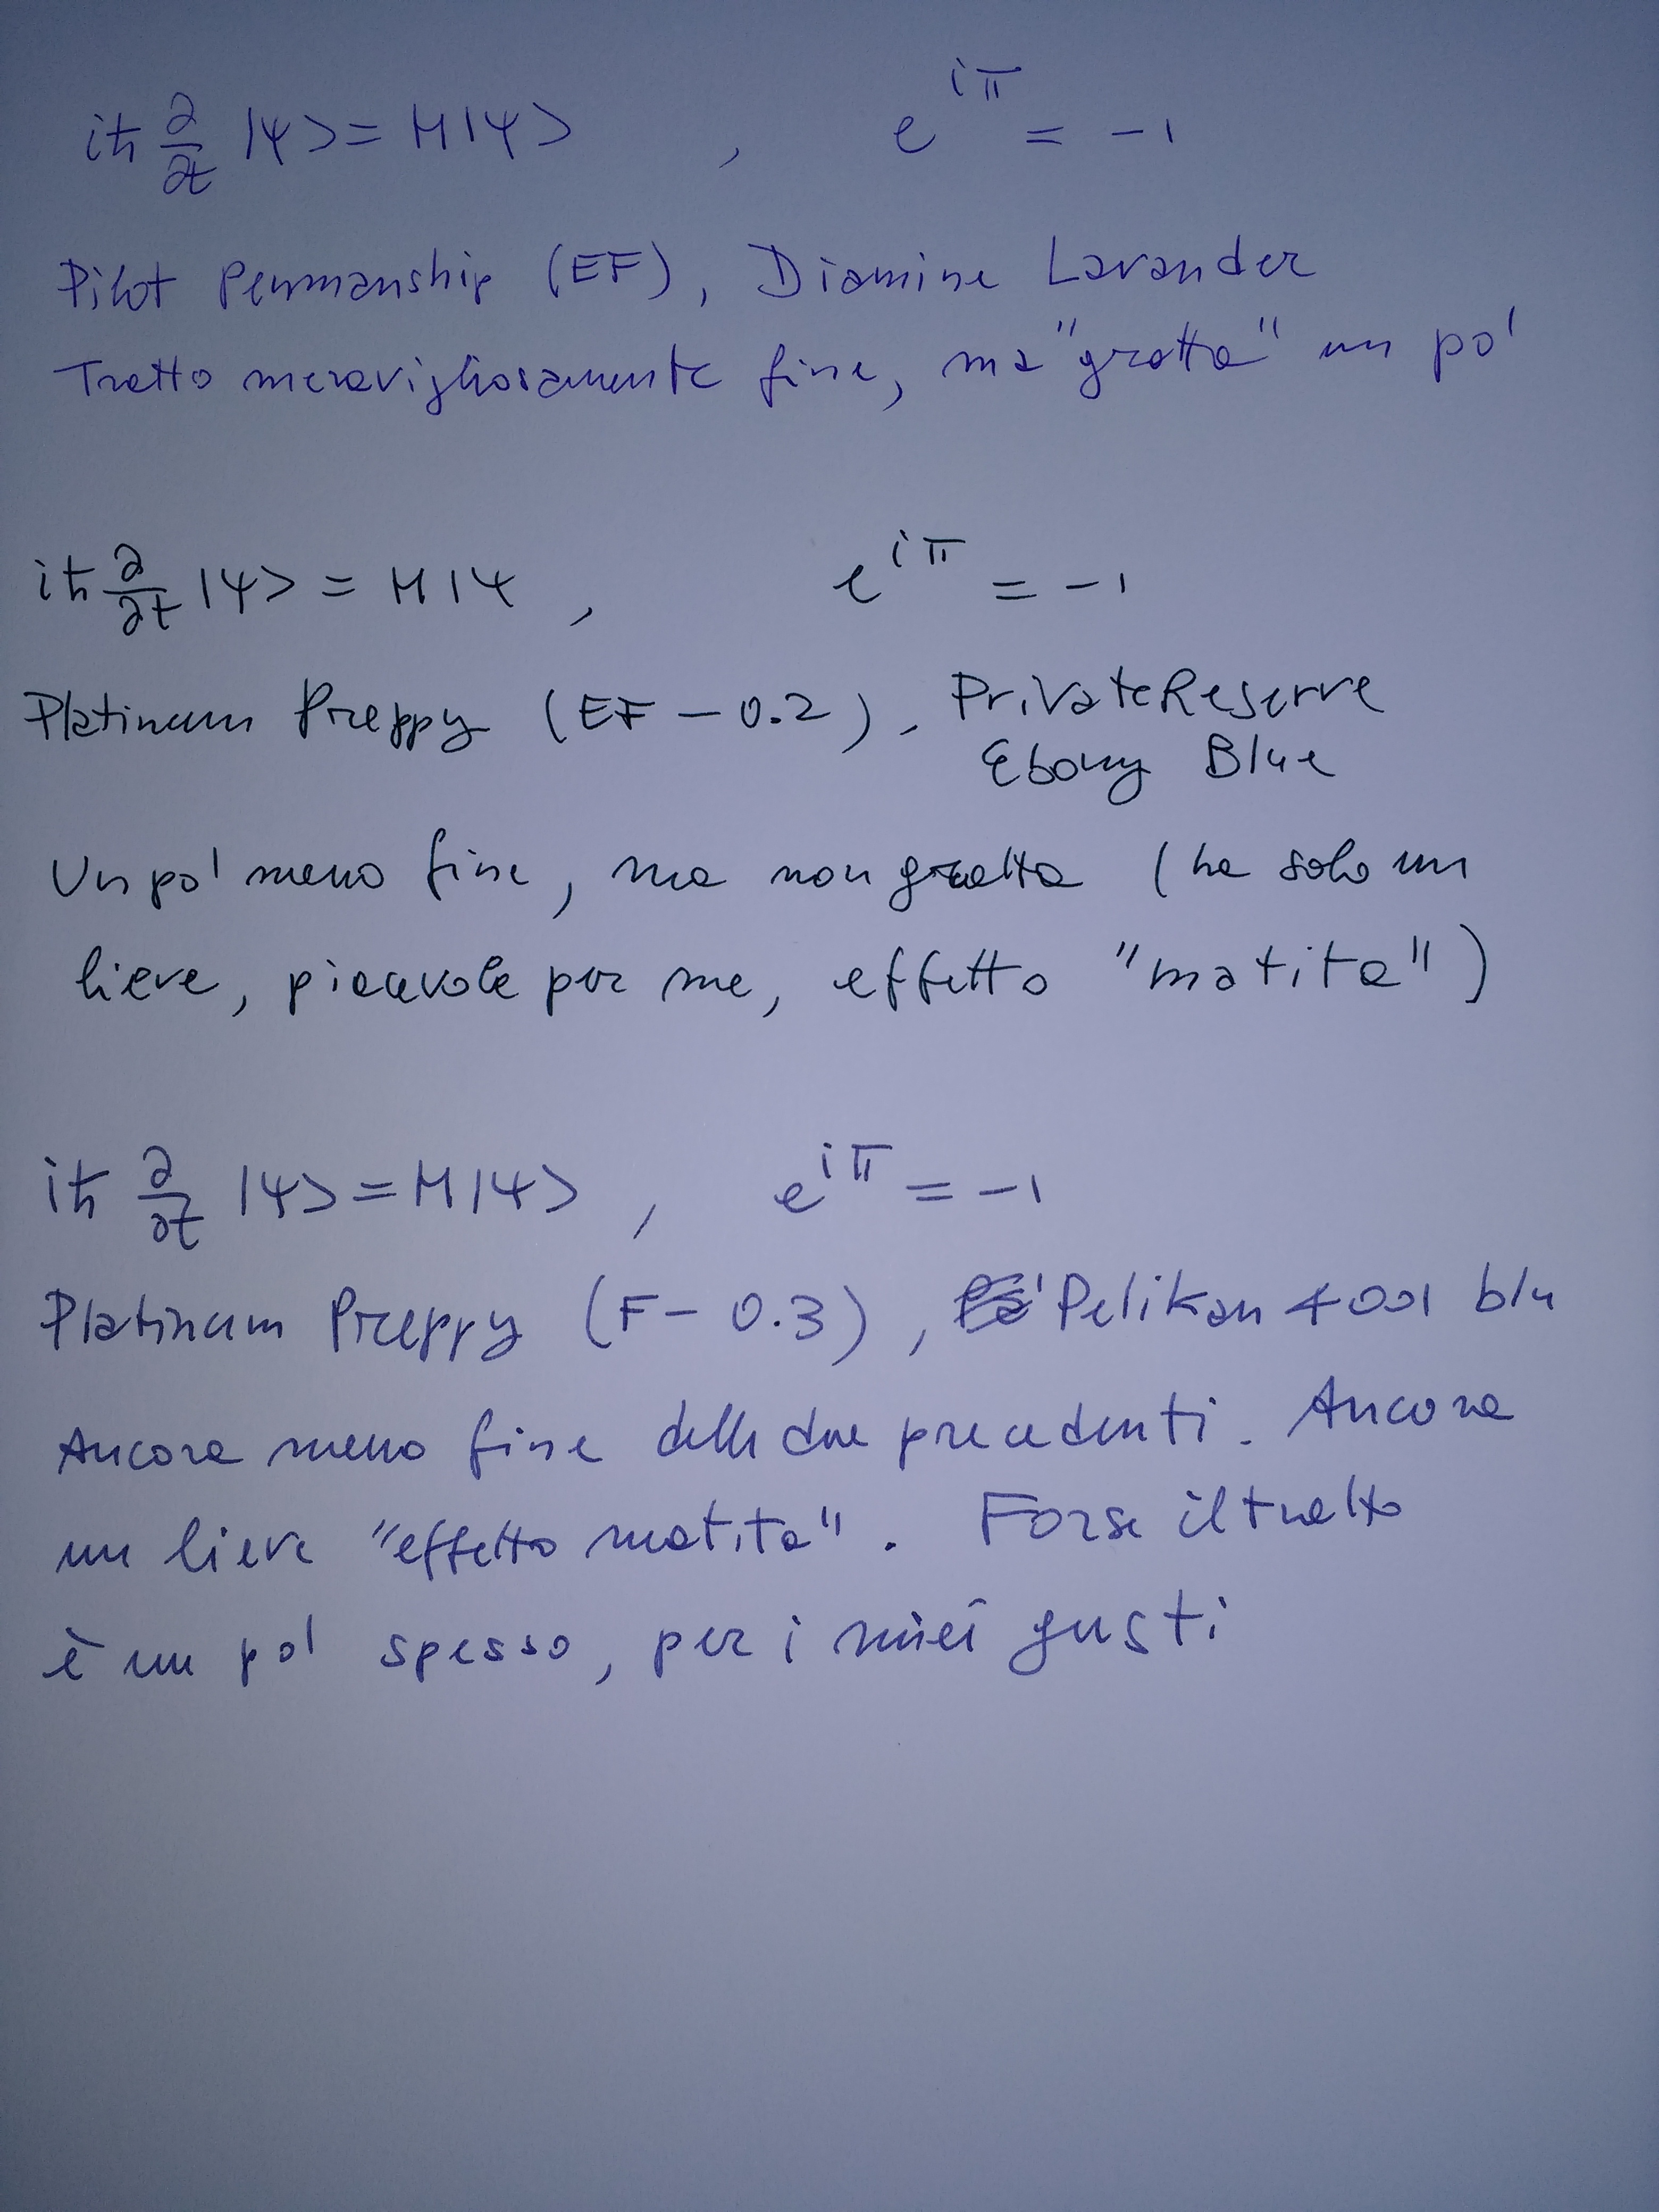 iħ ∂/∂t |ψ> = H|ψ> , e^{iπ} = -1
Pilot Penmanship (EF), Diamine Lavander
Tratto meravigliosamente fine, ma "gratta" un po'
iħ ∂/∂t |ψ> = H|ψ , e^{iπ} = -1
Platinum Preppy (EF - 0.2), Private Reserve
Ebony Blue
Un po' meno fine, ma non gratta (ha solo un
lieve, piacevole per me, effetto "matita")
iħ ∂/∂t |ψ> = H|ψ> , e^{iπ} = -1
Platinum Preppy (F - 0.3), Pelikan 4001 blu
Ancora meno fine delle due precedenti. Ancora
un lieve "effetto matita". Forse il tratto
è un po' spesso, per i miei gusti